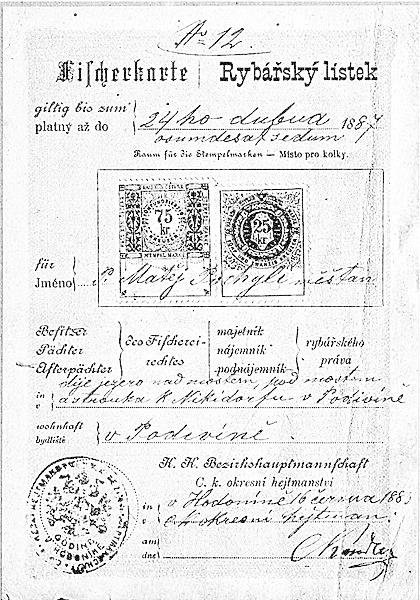 No 12.
Fischerkarte | Rybářský lístek
giltig bis zum
platný až do 24ho dubna 1887
osumdesát sedum
Raum für die Stempelmarken — Místo pro kolky.
75 kr
25 kr
STEMPEL MARKE
für
Jméno P. Matěj měšťan
Besitzer
Pächter
Afterpächter
des Fischerei-
rechtes
majetník
nájemník
podnájemník
rybářského
práva
jezero nad mostem, pod mostem
in
v k v Podivíně
wohnhaft
bydliště v Podivíně.
K. K. Bezirkshauptmannschaft
C. k. okresní hejtmanství
in
v v Hodoníně 16 června 188
C. k. okresní hejtman.
am
dne